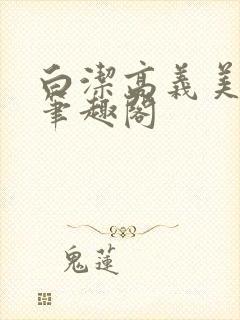 白潔高義美
筆趣閣
鬼蓮